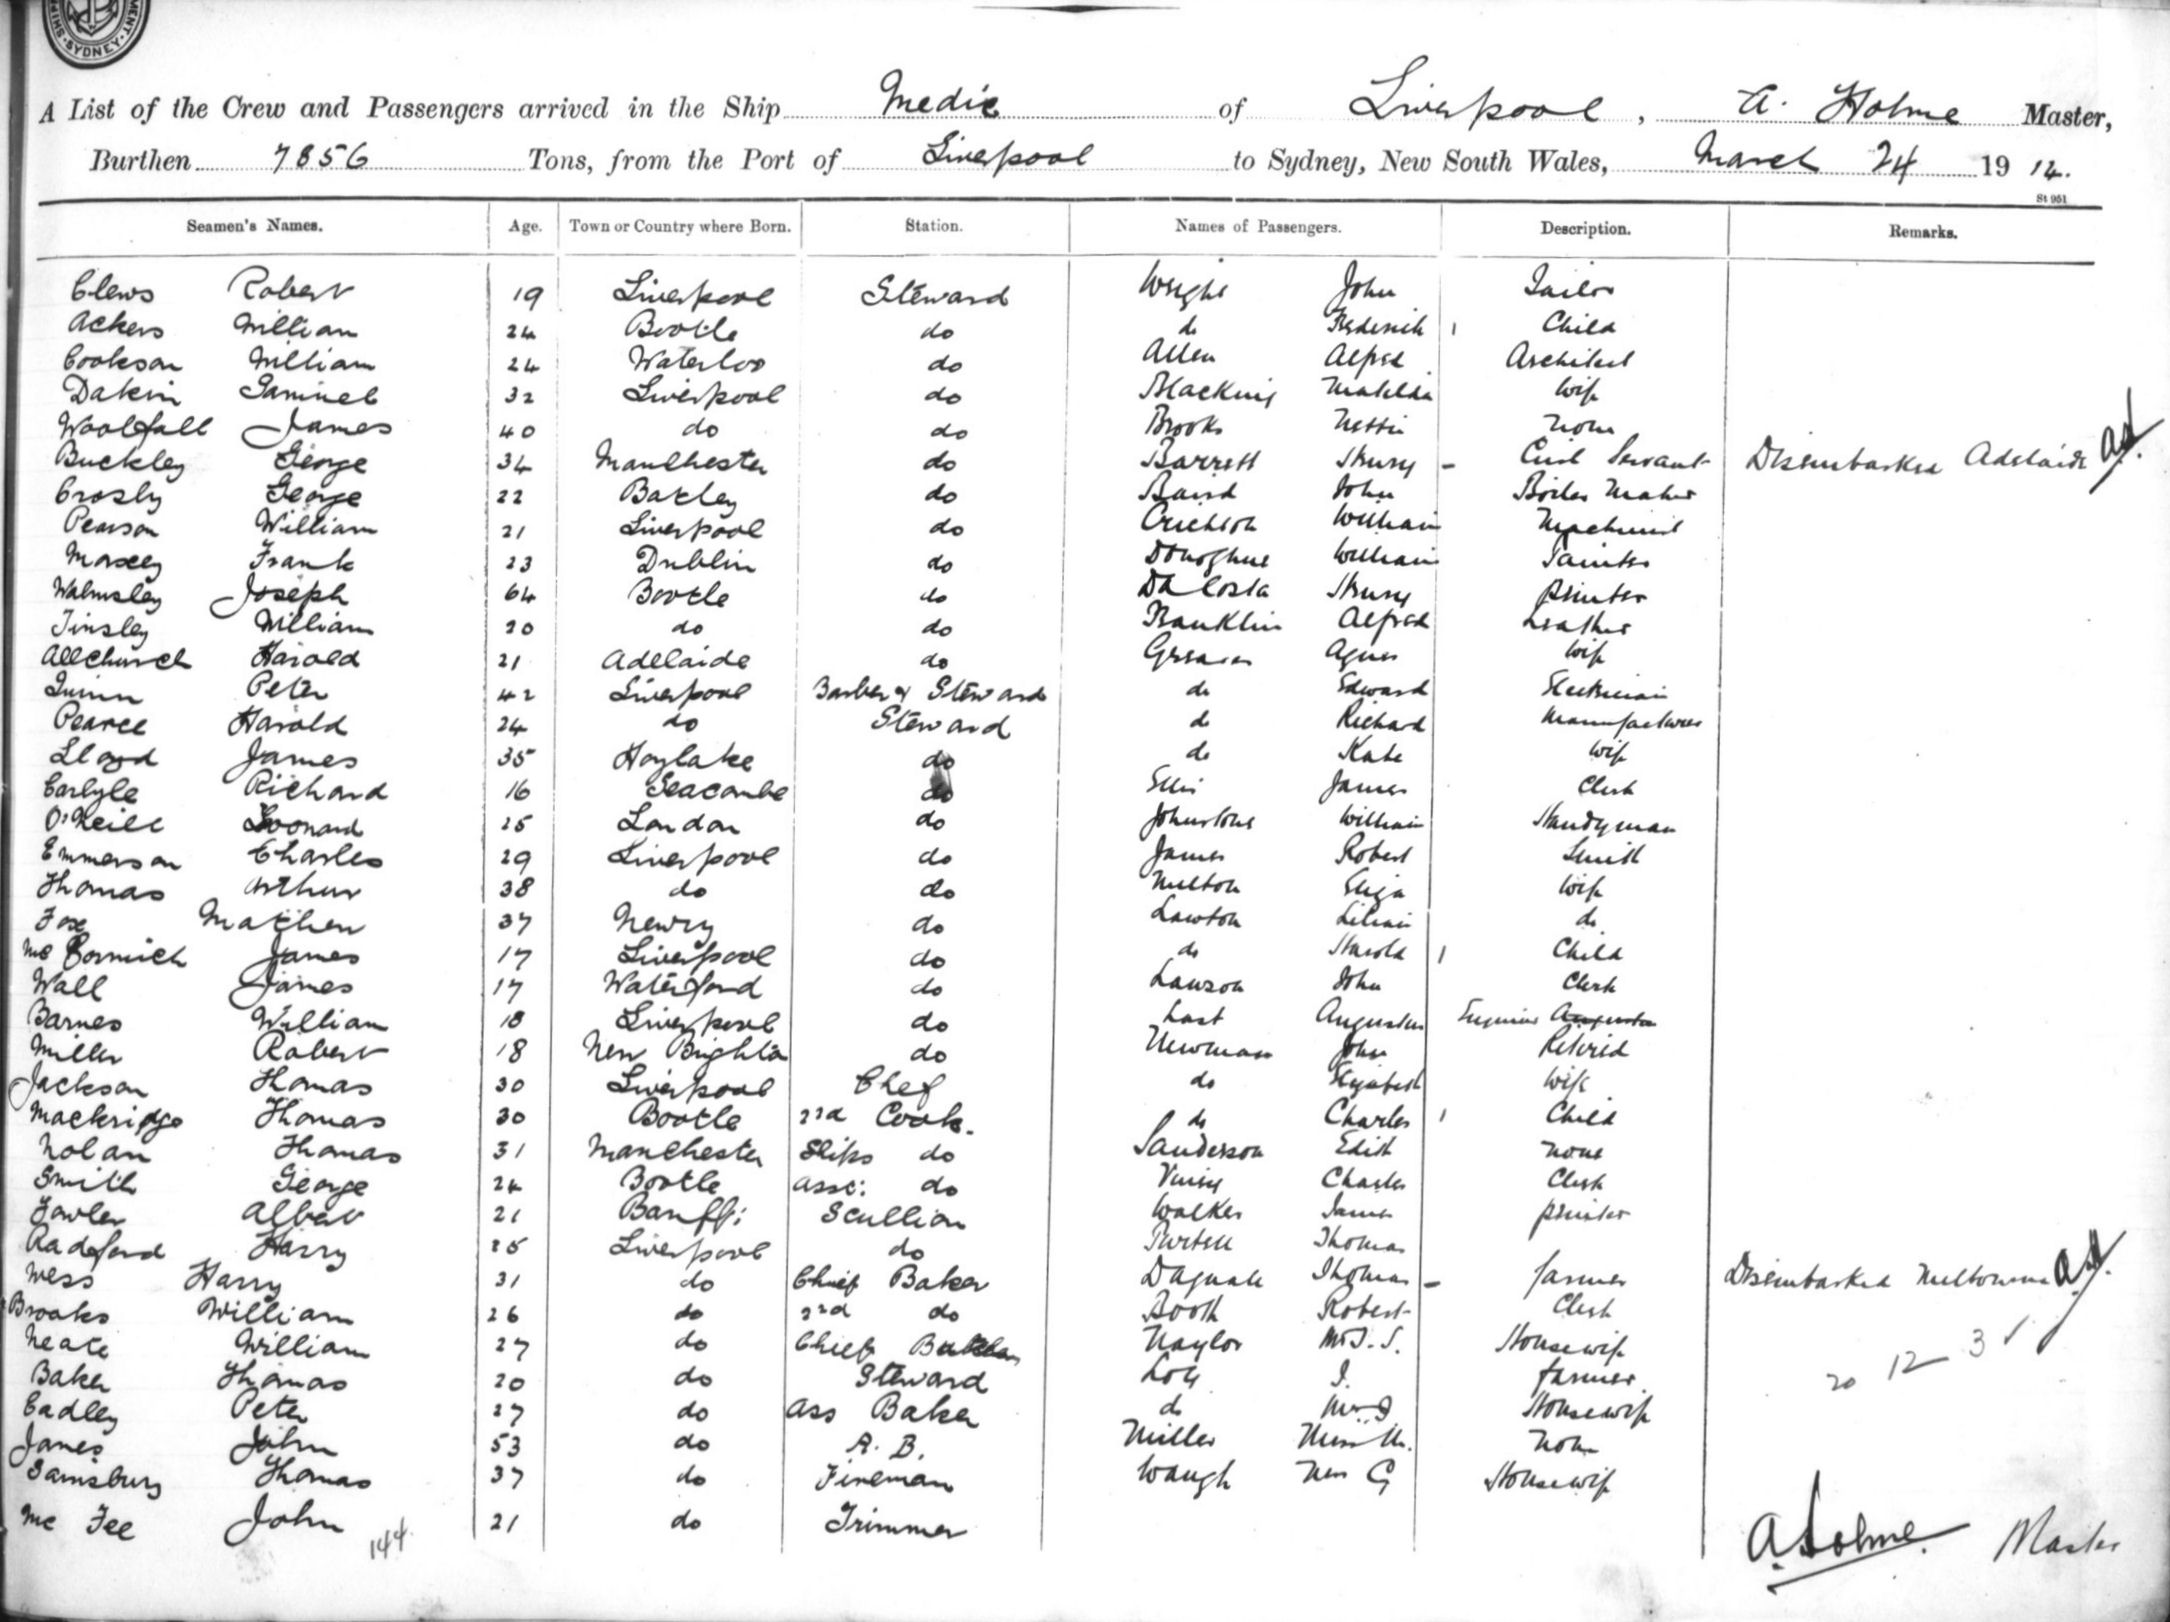 SYDNEY
A List of the Crew and Passengers arrived in the Ship Medic of Liverpool, A. Holme Master,
Burthen 7856 Tons, from the Port of Liverpool to Sydney, New South Wales, March 24 1914.
St 951
Seamen's Names. Age. Town or Country where Born. Station. Names of Passengers. Description. Remarks.
Clews Robert 19 Liverpool Steward Wright John Tailor
Ackers William 24 Bootle do do Frederick 1 Child
Cookson William 24 Waterloo do Allen Alfred Architect
Dakin Samuel 32 Liverpool do Matilda Wife
Woolfall James 40 do do Brooks Nettie None
Buckley George 34 Manchester do Barrett Henry - Civil Servant Disembarked Adelaide
Crosby George 22 Batley do Baird John Boiler Maker
Pearson William 21 Liverpool do Crichton William Machinist
Maxey Frank 23 Dublin do Donoghue William Painter
Walmsley Joseph 64 Bootle do Da Costa Henry Printer
Tinsley William 20 do do Franklin Alfred Leather
Allchurch Harold 21 Adelaide do Greaves Agnes Wife
Quinn Peter 42 Liverpool Barber & Steward do Edward Electrician
Pearce Harold 24 do Steward do Richard Manufacturer
Lloyd James 35 Hoylake do do Kate Wife
Carlyle Richard 16 Seacombe do Ellis James Clerk
O'Neill Leonard 25 London do Johnstone William Handyman
Emmerson Charles 29 Liverpool do James Robert Smith
Thomas Arthur 38 do do Melton Eliza Wife
Fox Mathew 37 Newry do Lawton Lilian do
Mc Cormick James 17 Liverpool do do Harold 1 Child
Wall James 17 Waterford do Lawson John Clerk
Barnes William 18 Liverpool do Last Augustus Engineer
Miller Robert 18 New Brighton do Newman John Retired
Jackson Thomas 30 Liverpool Chef do Elizabeth Wife
Mackridge Thomas 30 Bootle 2nd Cook. do Charles 1 Child
Nolan Thomas 31 Manchester Ships do Sanderson Edith None
Smith George 24 Bootle Asst: do Charles Clerk
Fowler Albert 21 Banff: Scullion Walker James Printer
Radford Harry 25 Liverpool do Thomas
Wess Harry 31 do Chief Baker Thomas - farmer Disembarked Melbourne
Brooks William 26 do 2nd do Booth Robert Clerk
Neale William 27 do Chief Naylor Mrs J. S. Housewife
20 12 3 1
Baker Thomas 20 do Steward I. farmer
Cadley Peter 27 do Ass Baker do Mrs I Housewife
James John 53 do A. B. Miller Miss M. None
Sainsbury Thomas 37 do Fireman Waugh Mrs G Housewife
Mc Fee John 21 do Trimmer
144
A Holme. Master